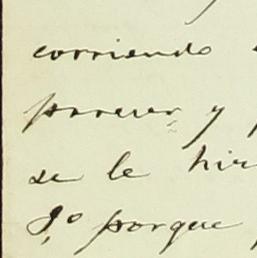 corriendo
parecer y
se le hir
Jº porque